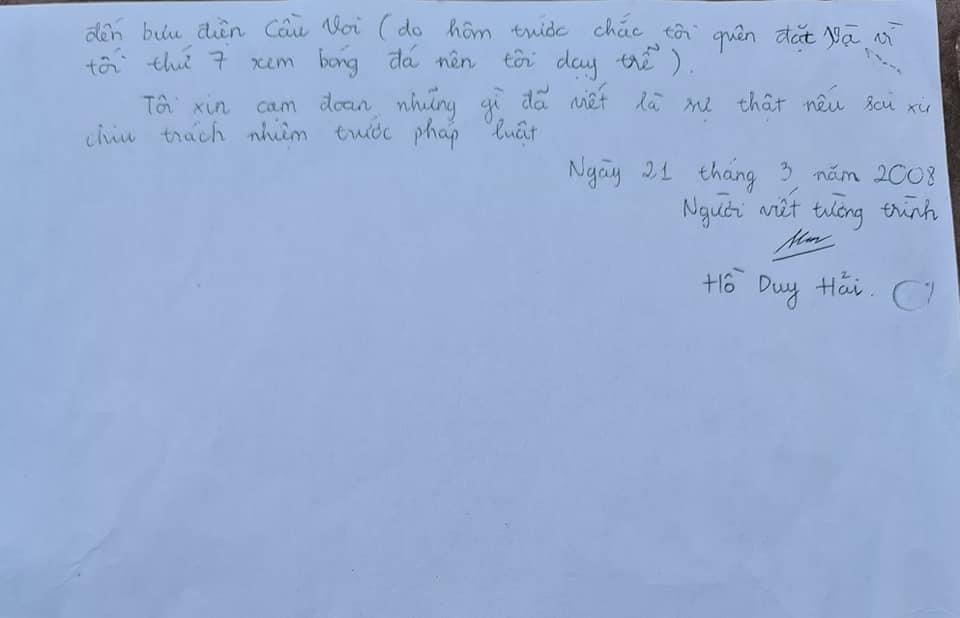 đến bưu điện Cầu Voi (do hôm trước chắc tôi quên đặt và vì
tối thứ 7 xem bóng đá nên tôi dạy trễ).
Tôi xin cam đoan những gì đã viết là sự thật nếu sai xin
chịu trách nhiệm trước pháp luật
Ngày 21 tháng 3 năm 2008
Người viết tường trình
Hồ Duy Hải.